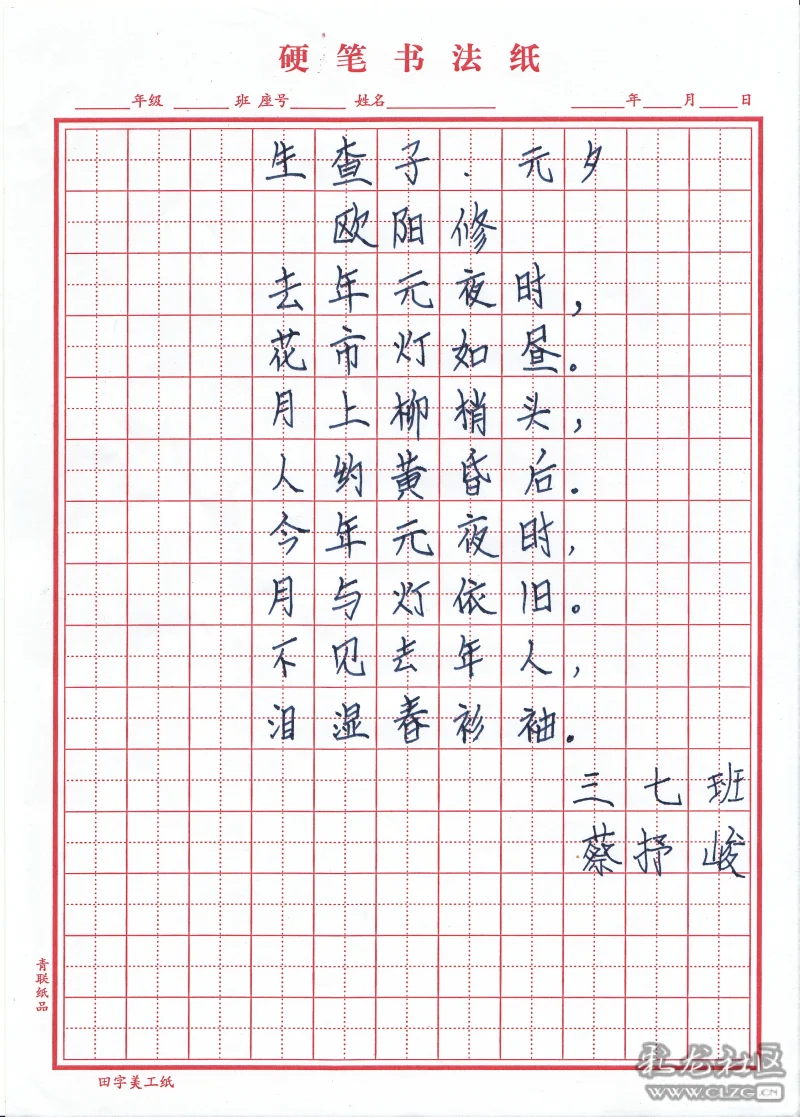 硬笔书法纸
年级 班 座号 姓名 年 月 日
生查子·元夕
欧阳修
去年元夜时，
花市灯如昼。
月上柳梢头，
人约黄昏后。
今年元夜时，
月与灯依旧。
不见去年人，
泪湿春衫袖。
三七班
蔡抒峻
青联纸品
田字美工纸
社区
WWW.CLZG.CN